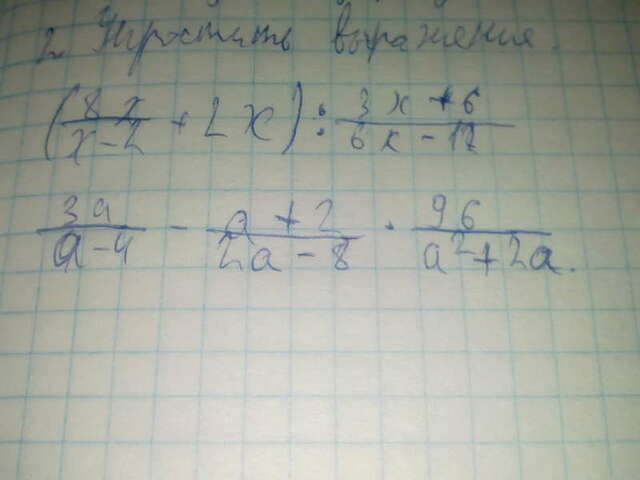 2. Упростить выражения.
(8x/(x-2) + 2x) : (3x+6)/(6x-12)
3a/(a-4) - (a+2)/(2a-8) · 96/(a²+2a).